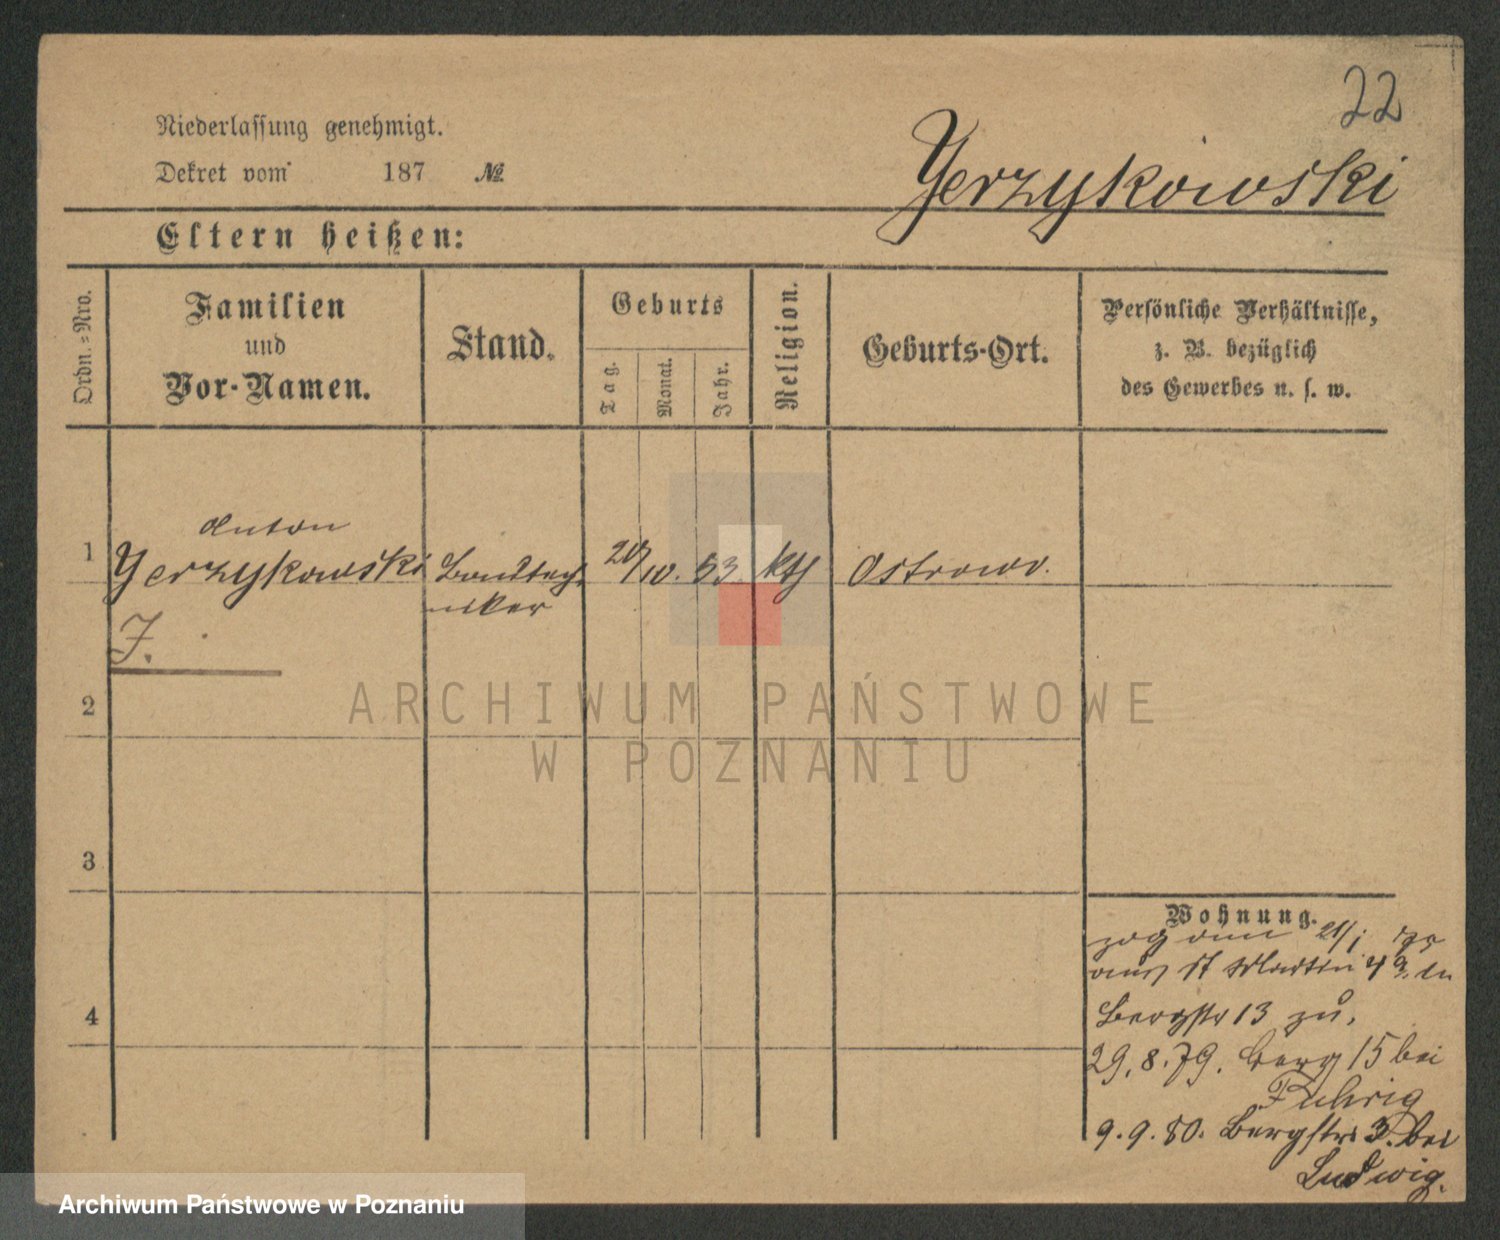 22
Niederlassung genehmigt.
Dekret vom 187 №
Yerzykowski
Eltern heißen:
Ordn.=Nro.
Familien
und
Vor-Namen.
Stand.
Geburts
Tag.
Monat.
Jahr.
Religion.
Geburts-Ort.
Persönliche Verhältnisse,
z. B. bezüglich
des Gewerbes u. s. w.
Anton
1 Yerzykowski 20/10. 53 kth Ostrowo.
niker
J.
2
3
4
Wohnung.
zog am 21/1
aus St Martin in
Bergstr 13 zu.
29.8.79. Berg 15 bei
Fuhrig
9.9.80. Bergstr. 3. bei
Ludwig.
ARCHIWUM PAŃSTWOWE
W POZNANIU
Archiwum Państwowe w Poznaniu